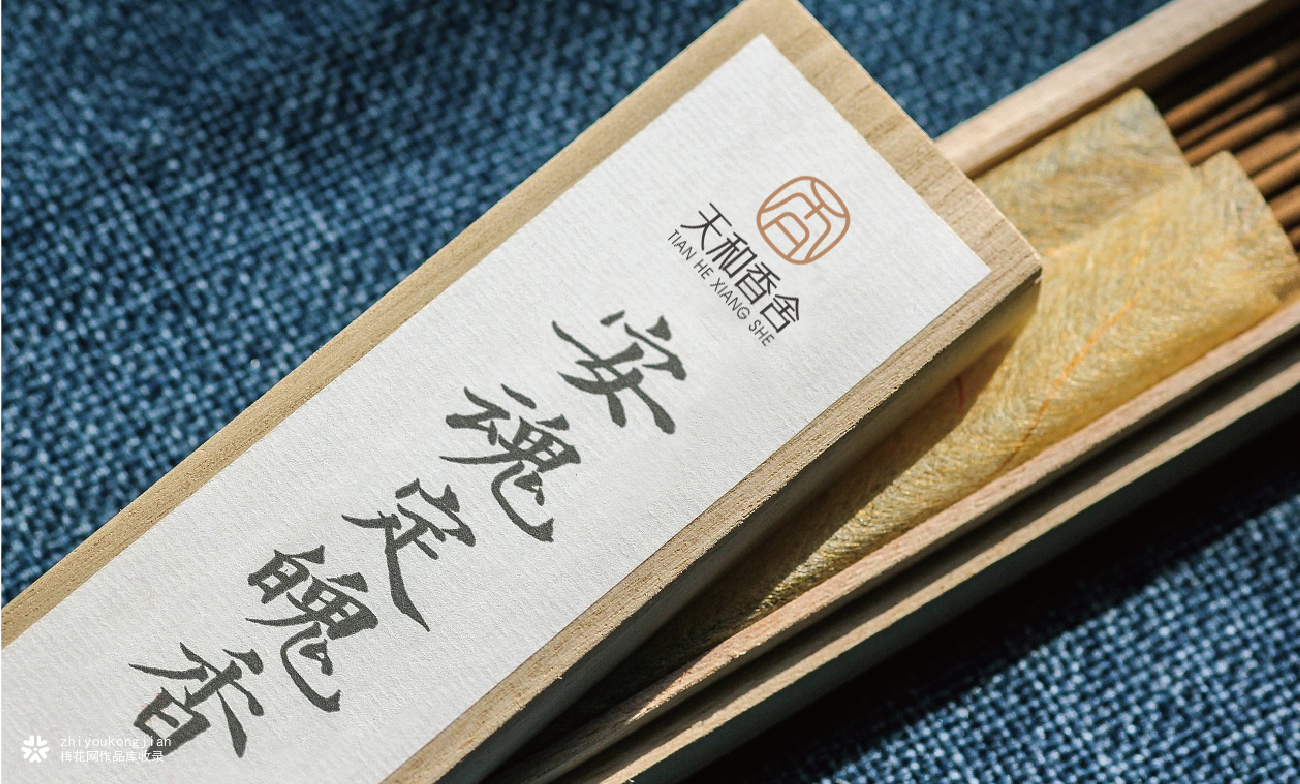 香
天和香舍
TIAN HE XIANG SHE
安魂定魄香
zhiyoukongjian
梅花网作品库收录